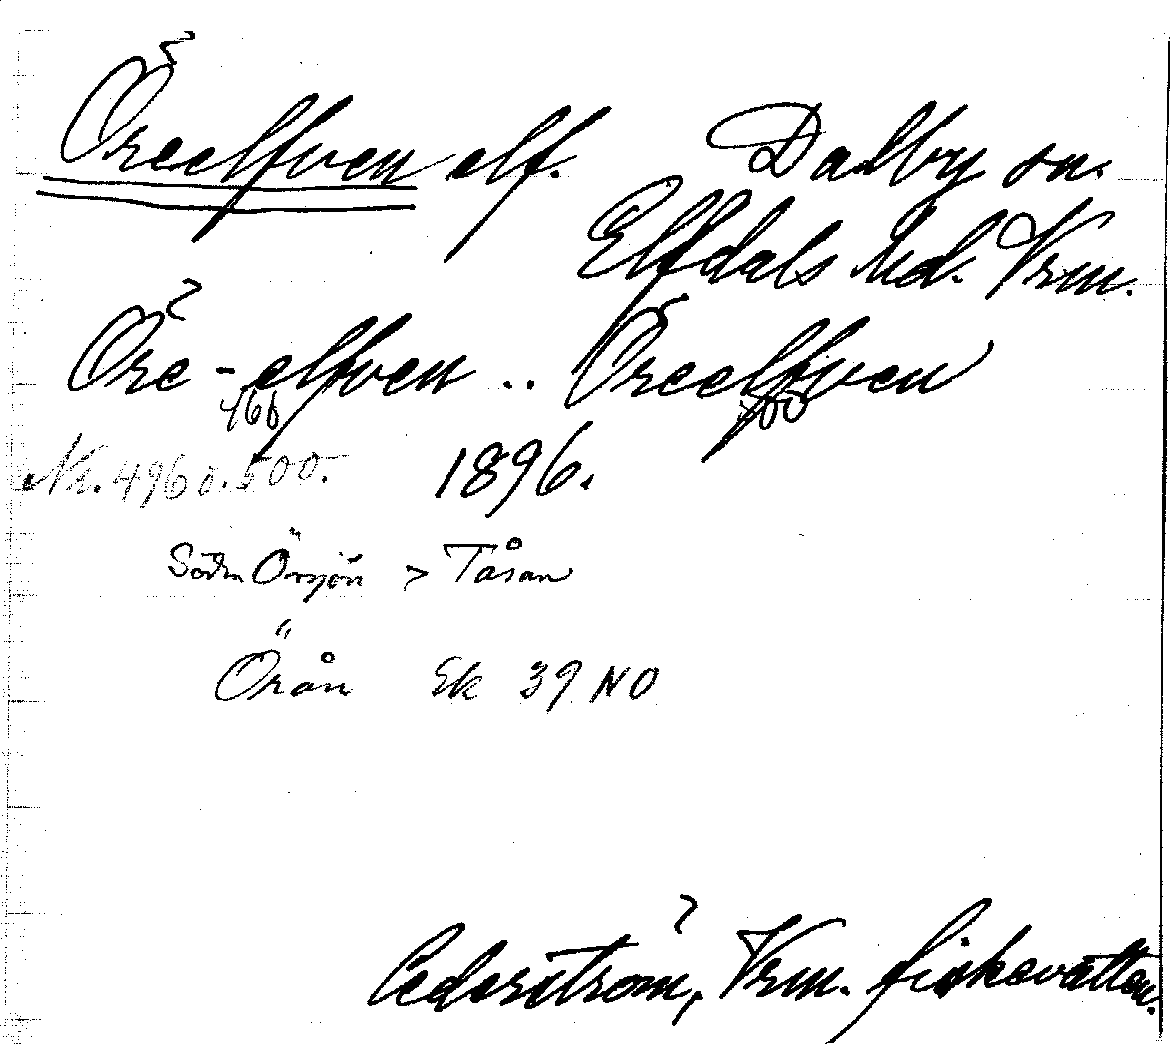 Öreelfven elf. Dalby sn.
Elfdals hd. Vrm.
Öre-elfven .. Öreelfven
466 500
Nr. 4960.500. 1896.
Södra Örsjön > Tåsan
Örån Ek 39 NO
Cederström, Vrm. fiskevatten.